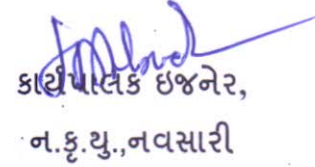 કાર્યપાલક ઇજનેર,
ન.કૃ.યુ.,નવસારી